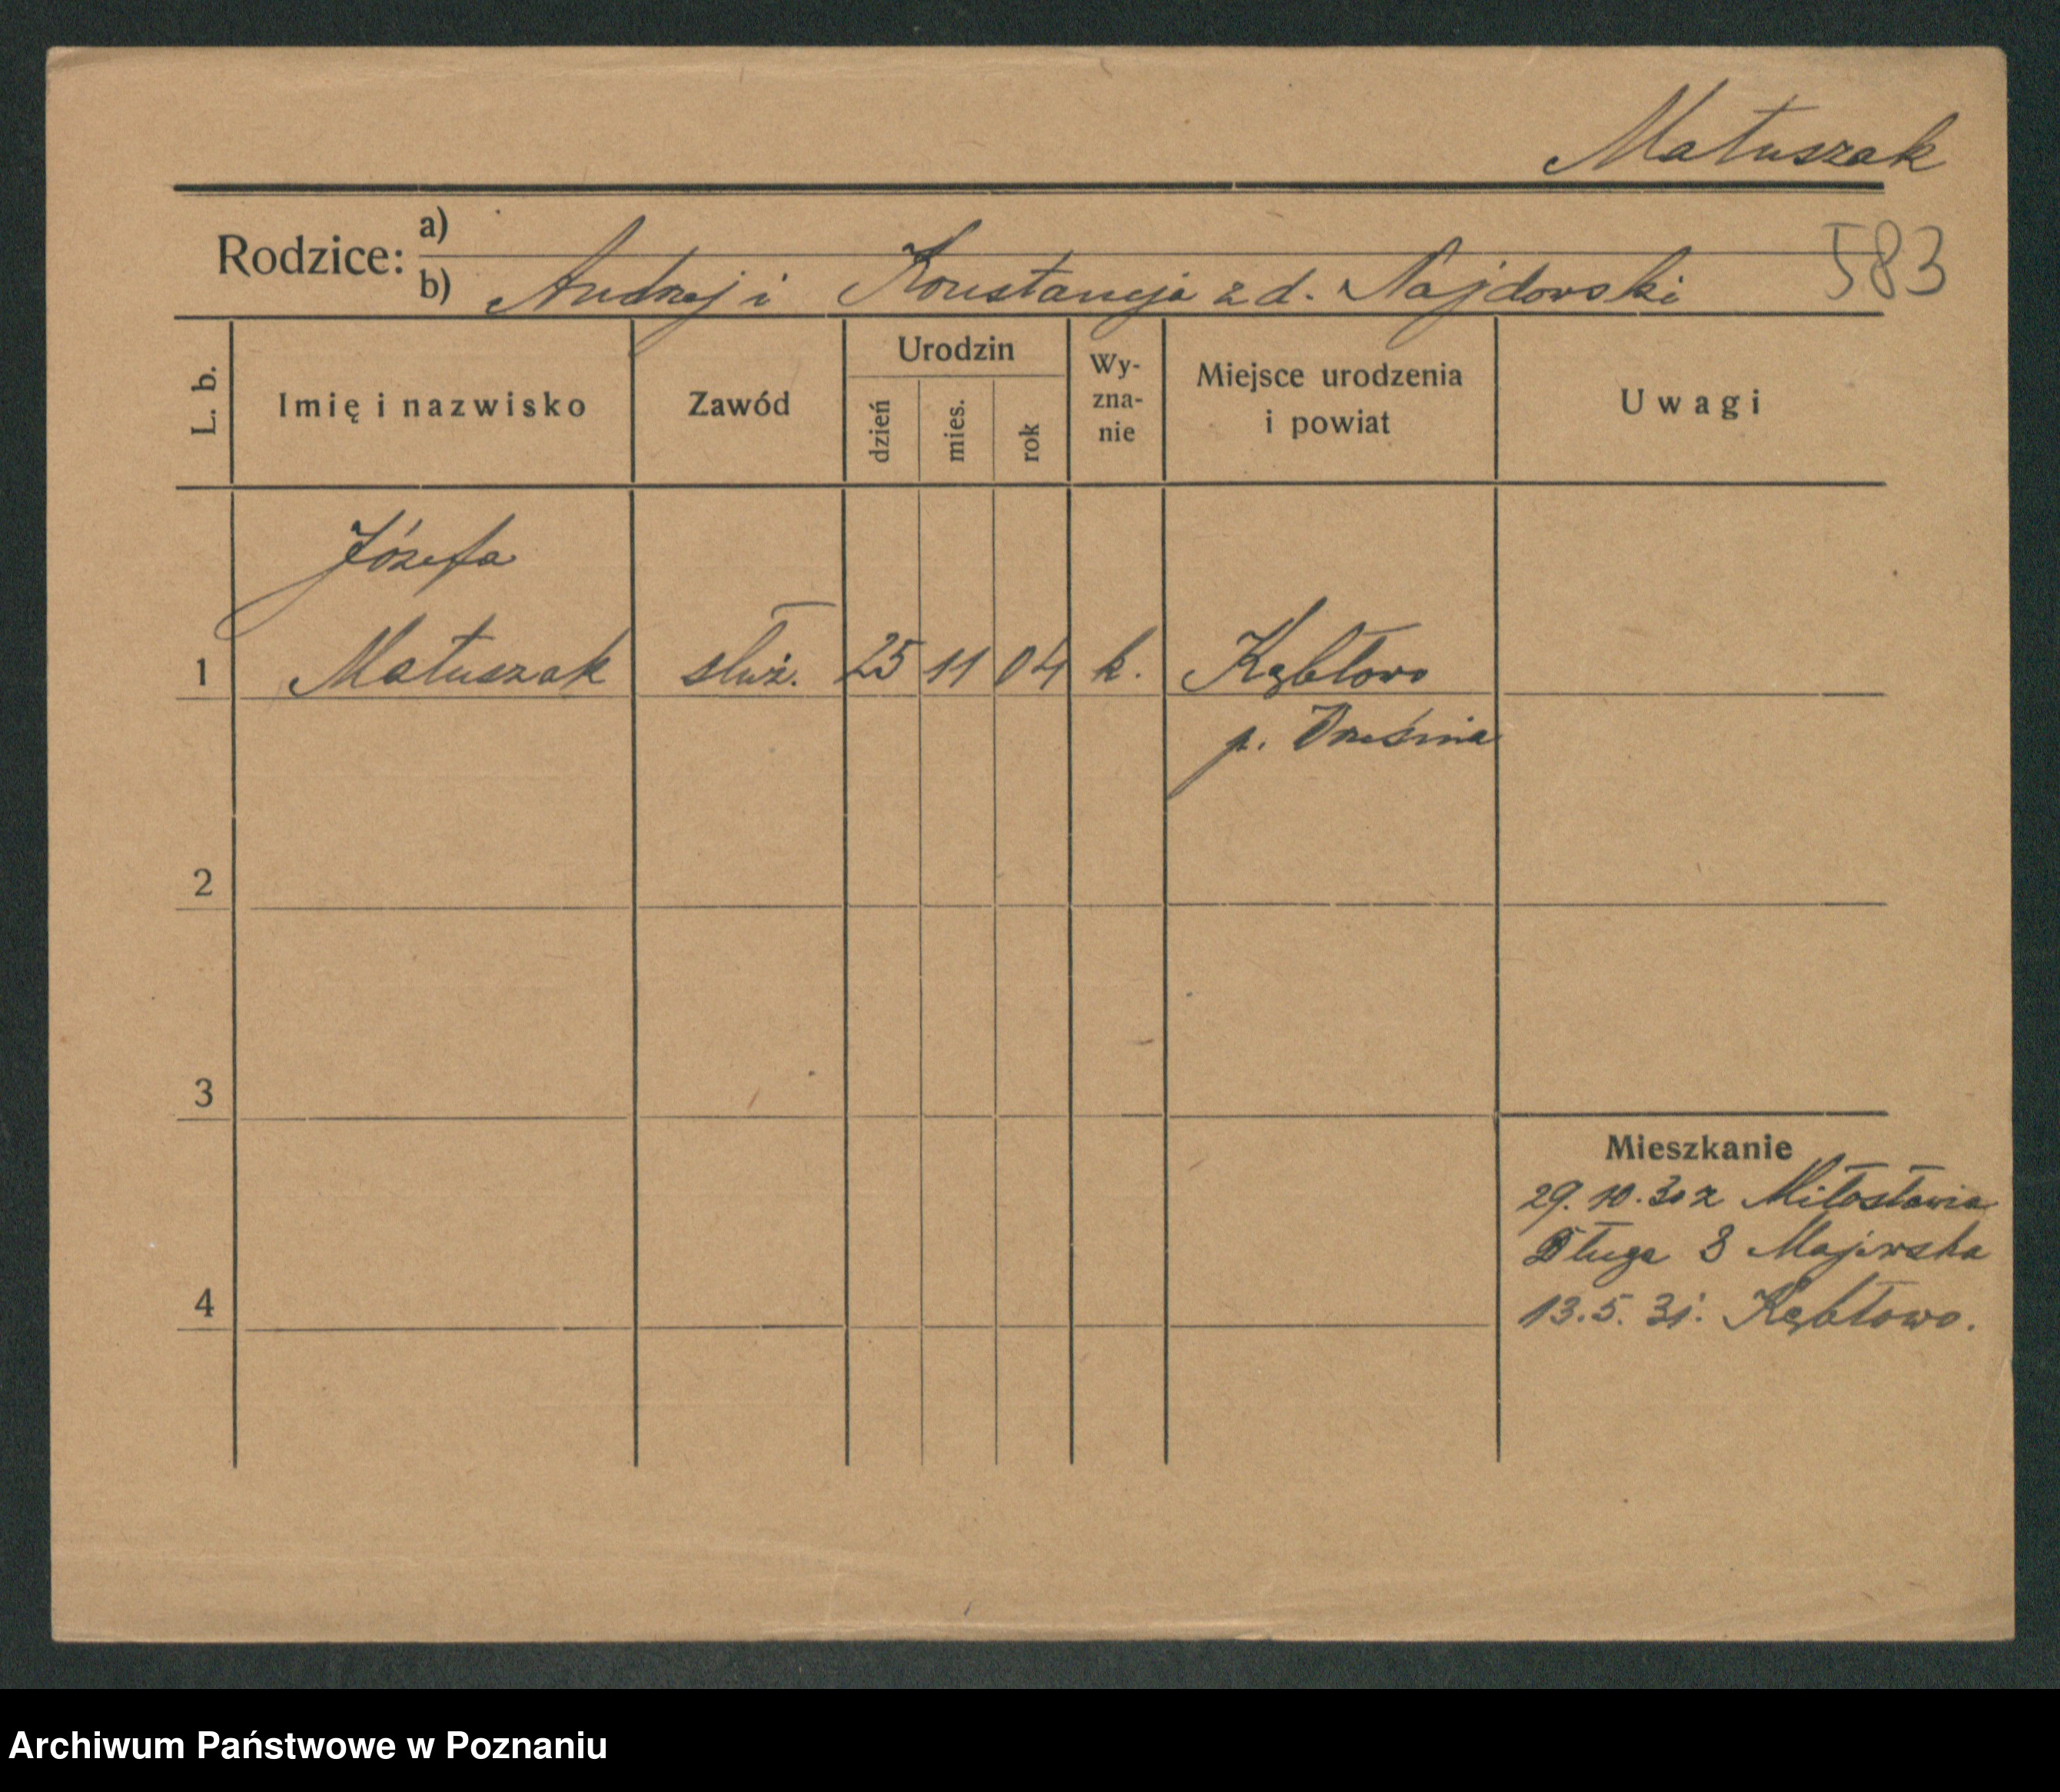 Matuszak
583
Rodzice: a)
b) Andrzej i Konstancja z d. Najdowski
L. b.
Imię i nazwisko
Zawód
Urodzin
dzień
mies.
rok
Wy-
zna-
nie
Miejsce urodzenia
i powiat
Uwagi
Józefa
1 Matuszak służ. 25 11 04 k. Kębłowo
p. Września
2
3
4
Mieszkanie
29. 10. 30 z Miłosławia
Długa 8 Majewska
13. 5. 31. Kębłowo.
Archiwum Państwowe w Poznaniu